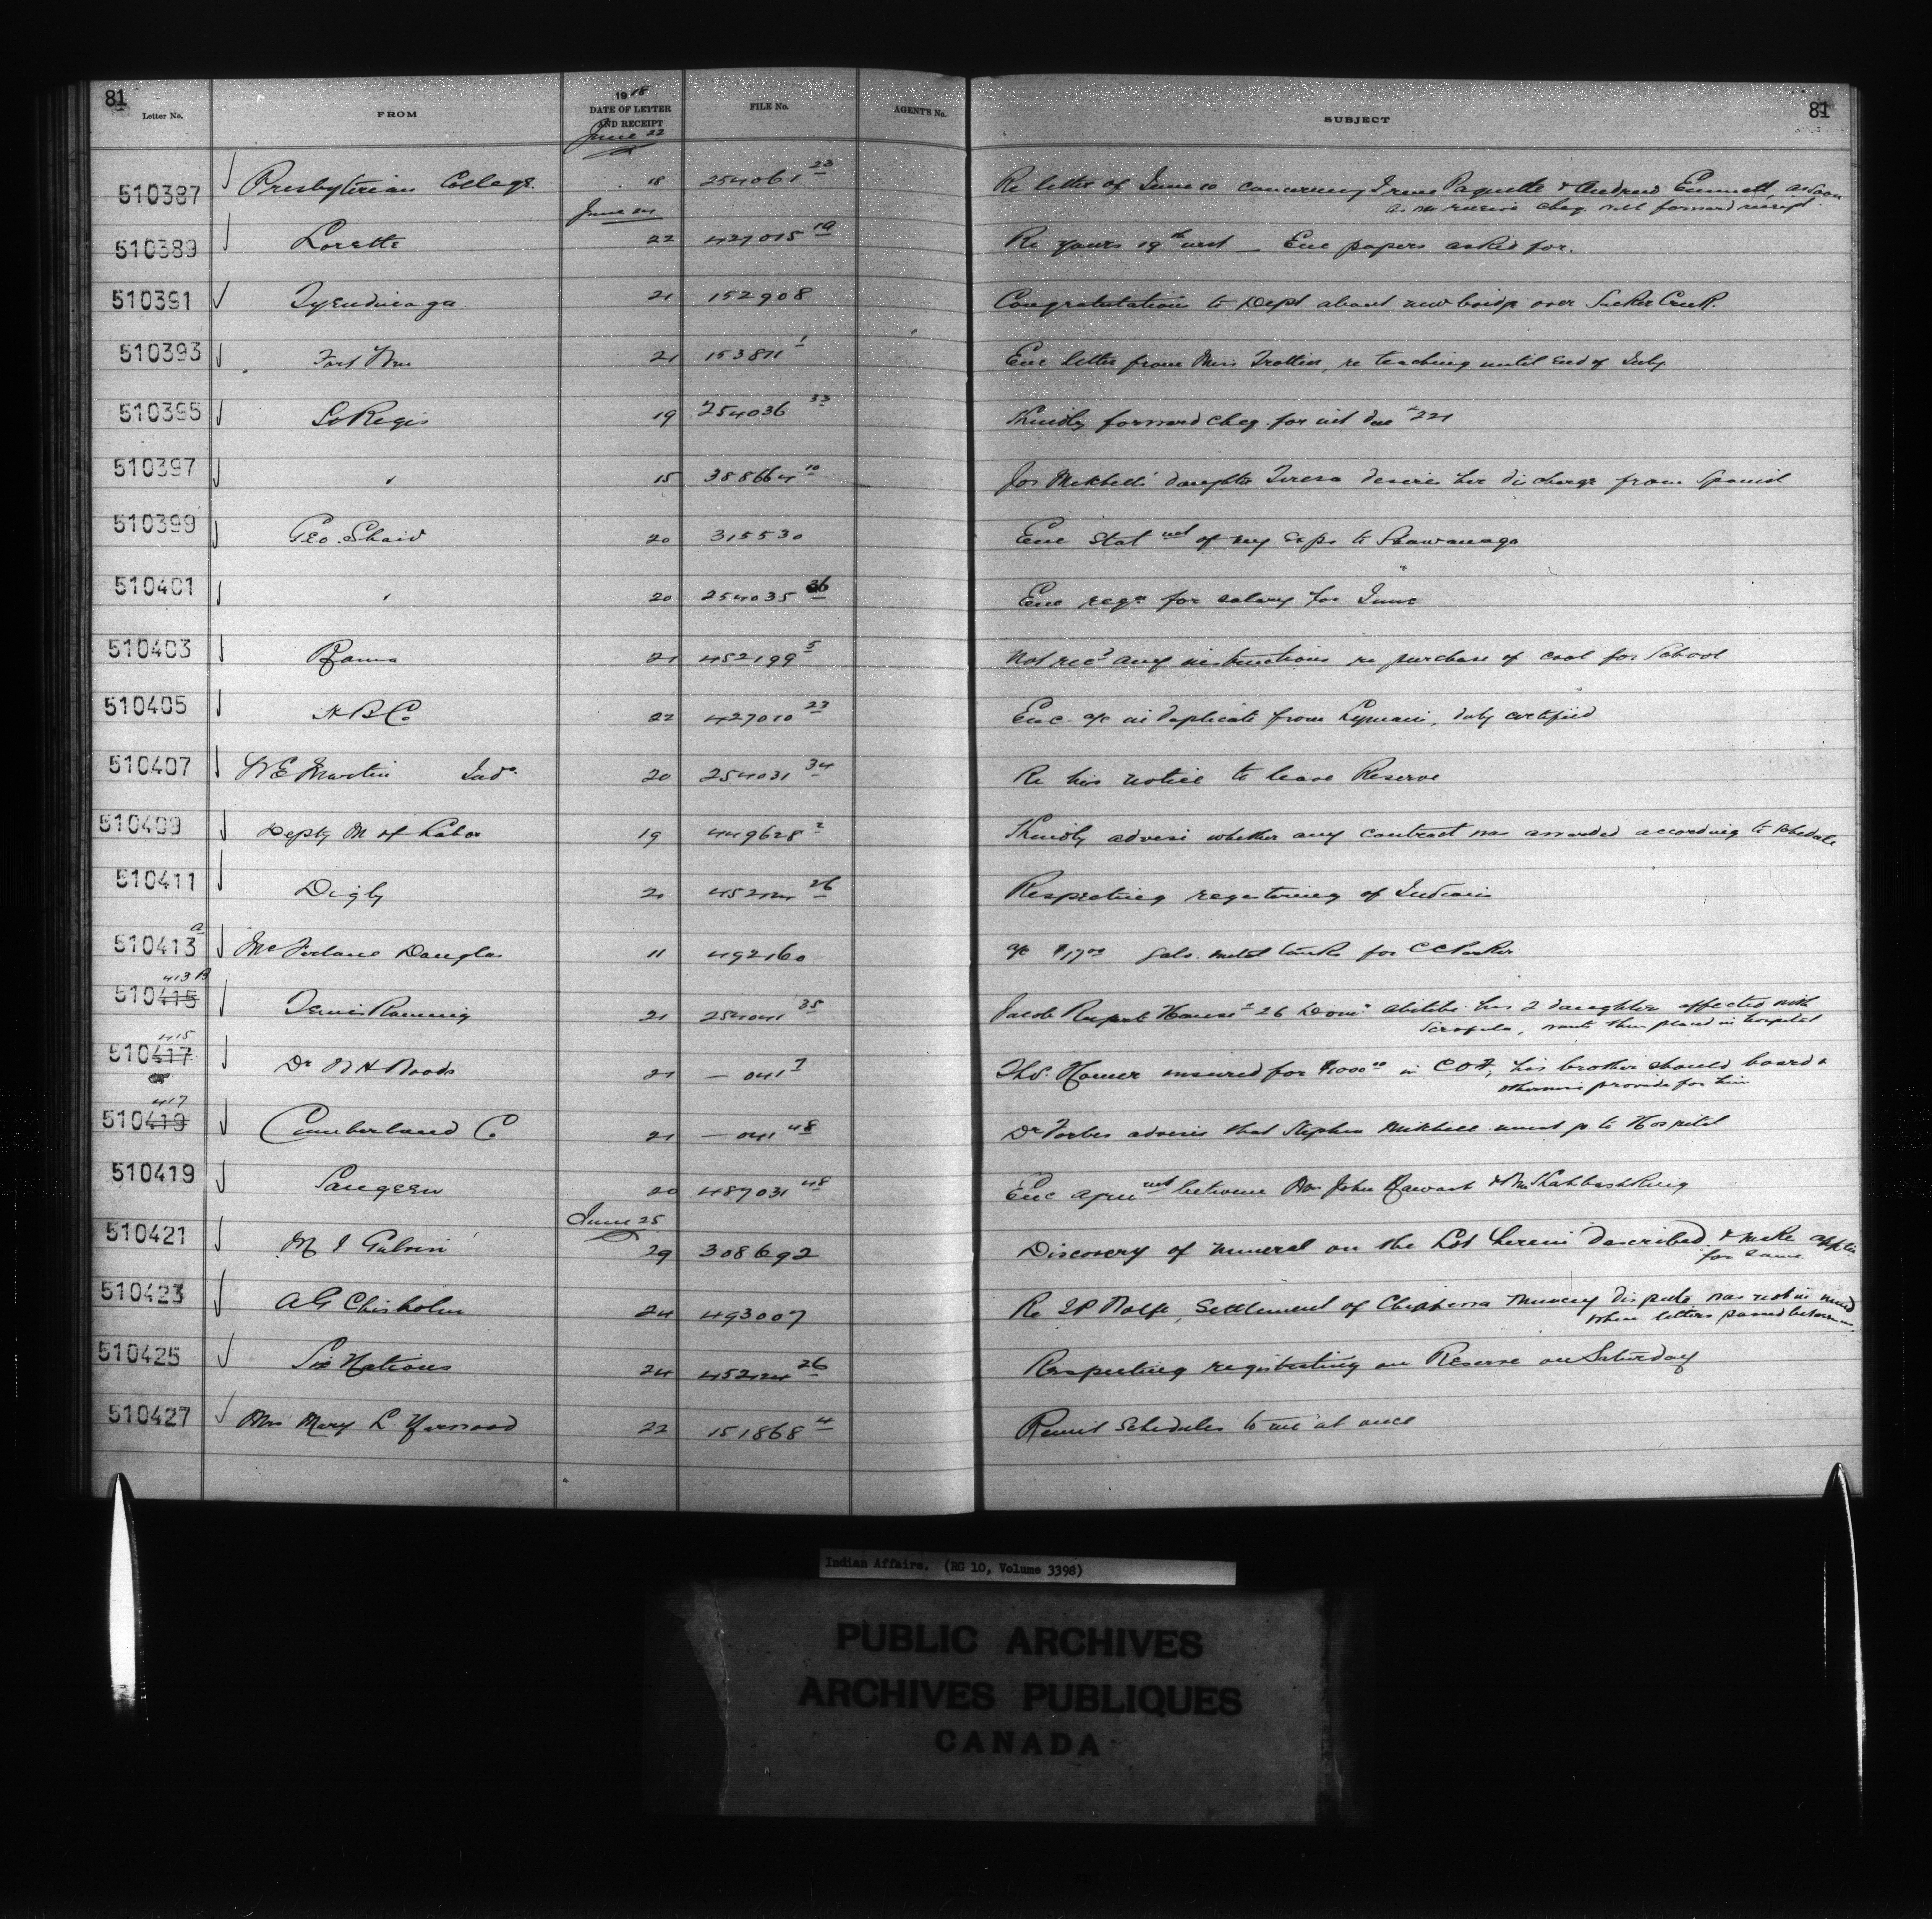 81
Letter No. FROM 1918 DATE OF LETTER AND RECEIPT FILE No. AGENT'S No. SUBJECT
81
June 22
510387 Presbyterian College 18 254061 23 Re letter of June 10 concerning Irene Paquette & Emmett, as soon
as we receive cheq. will forward receipt.
June 24
510389 Lorette 22 427015 19 Re yours 19th inst — Enc papers asked for.
510391 Tyendinaga 21 152908 Congratulation to Dept about new bridge over Sucker Creek.
510393 Fort Wm 21 153811 1 Enc letter from Miss Trottier, re teaching until end of July
510395 St Regis 19 254036 33 Kindly forward cheq. for int due 221
510397 " 15 388664 10 Jos daughter Teresa desires her discharge from Spanish
510399 Geo. 20 315530 Enc Statmet of my Exps to Shawanaga
510401 " 20 254035 36 Enc reqn for salary for June
510403 Rama 21 452199 5 Not recd any instructions re purchase of coal for School
510405 H B Co 22 427010 23 Enc a/c in duplicate from Lymans, duly certified
510407 W E Martin Inds. 20 254031 34 Re his notice to leave Reserve
510409 Depty M of Labor 19 449628 2 Kindly advise whether any contract was awarded according to Schedule
510411 Digby 20 452124 26 Respecting registering of Indians
510413 a McFarlane Douglas 11 492160 a/c $17.00 galv. metal tanks for C C Parker
413 B
510415 21 254041 35 Jacob Rupert House 26 Abitibi has 2 daughters affected with
Scrofula, wants them placed in hospital
415
510417 Dr Woods 21 — 041 7 Thos. insured for $1000.00 in COF; his brother should board &
otherwise provide for him
417
510419 Cumberland Co 21 — 041 48 Dr Forbes advises that Stephen must go to Hospital
510419 Saugeen 20 487031 48 Enc agreemet between Mrs John &
June 25
510421 M J Galvin 29 308692 Discovery of mineral on the Lot herein described & make applic
for same
510423 A G Chisholm 24 493007 Re Settlement of Chippewa Muncey dispute was not in mind
when letters passed between
510425 Six Nations 24 452124 26 Respecting registrating on Reserve on Saturday
510427 Mrs Mary L. Yarwood 22 151868 4 Remit Schedules to me at once
Indian Affairs. (RG 10, Volume 3398)
PUBLIC ARCHIVES
ARCHIVES PUBLIQUES
CANADA